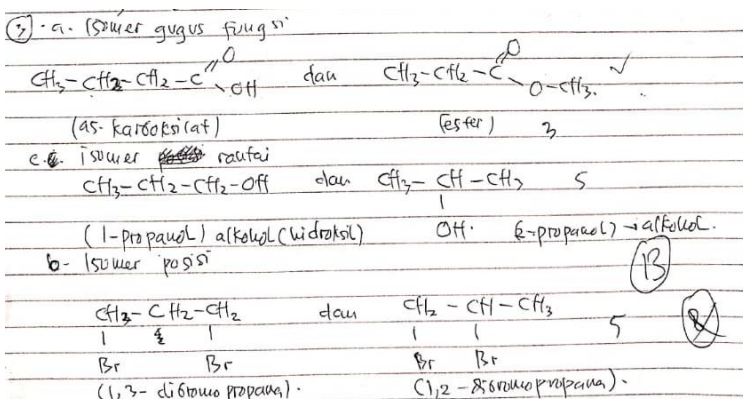 ③ · a. Isomer gugus fungsi
O
CH3-CH2-CH2-C OH dan CH3-CH2-C O-CH3. ✓
O
(as. karboksilat) (ester) 3
c. isomer rantai
CH3-CH2-CH2-OH dan CH3-CH-CH3 5
(1-propanol) alkohol (hidroksil) OH. (2-propanol) → alkohol.
b- Isomer posisi
13
CH3-CH2-CH2 dan CH2-CH-CH3 5
Br Br Br Br
(1,3- dibromo propana). (1,2-dibromopropana).